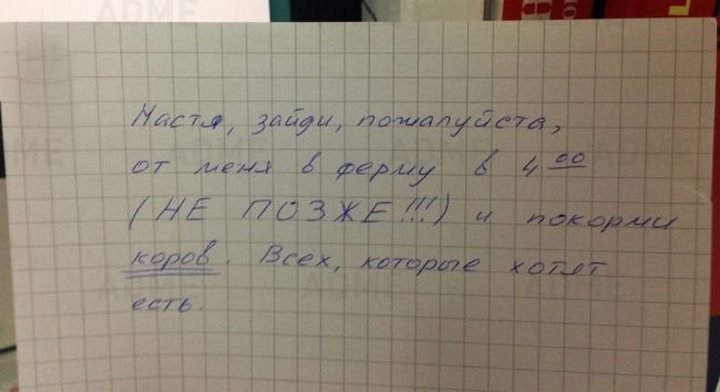 ADME
Настя, зайди, пожалуйста,
от меня в ферму в 4 00
(НЕ ПОЗЖЕ!!!) и покорми
коров. Всех, которые хотят
есть.